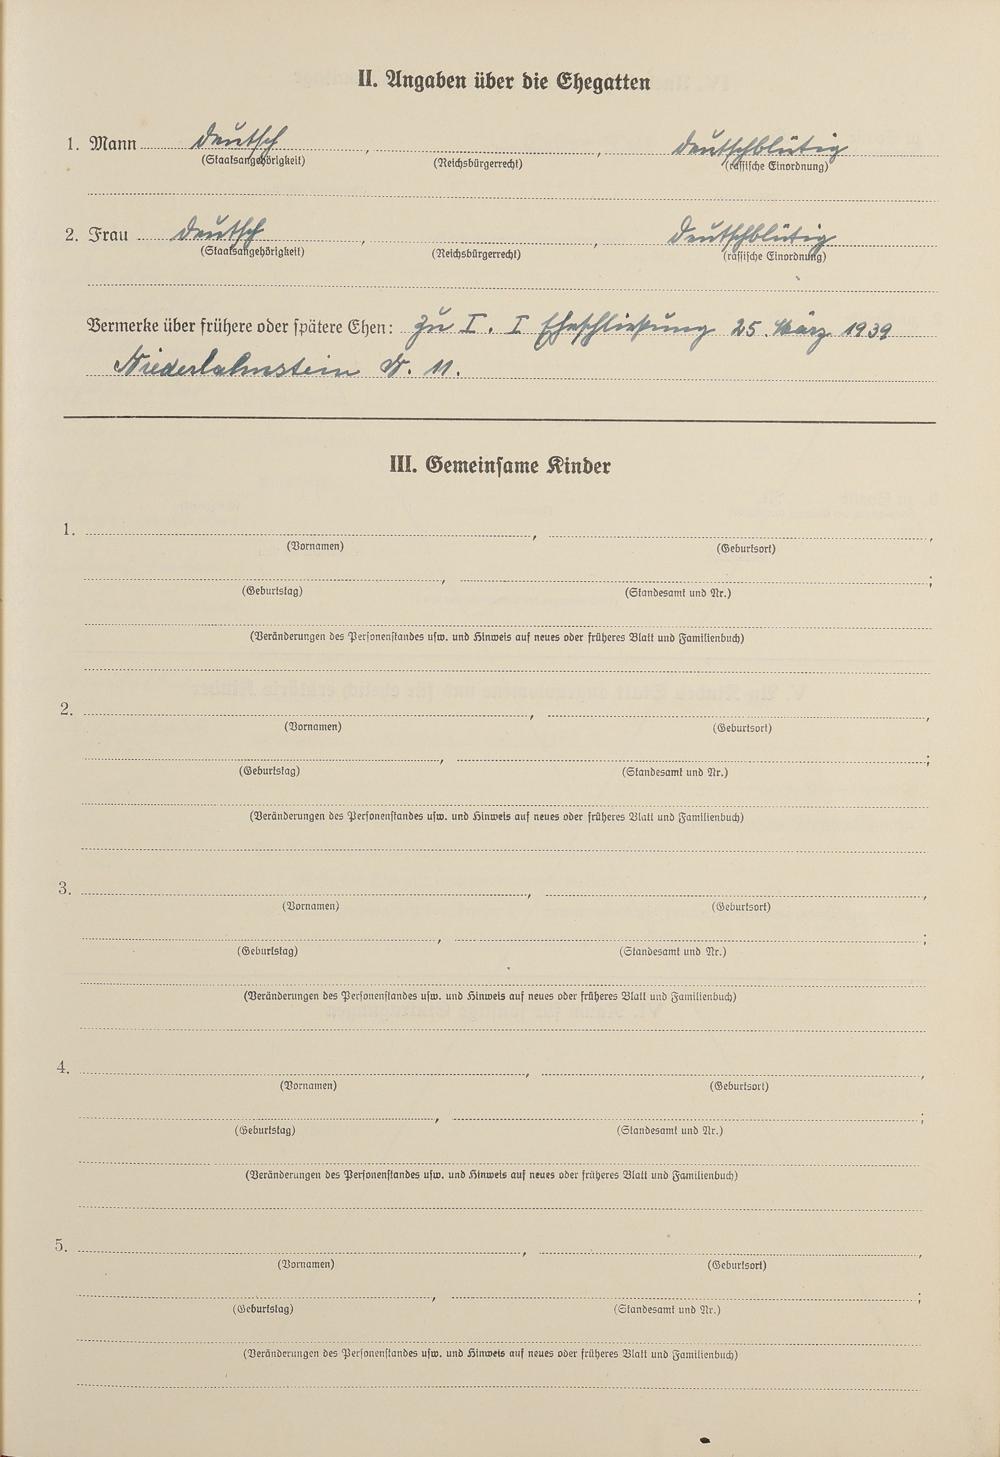 II. Angaben über die Ehegatten
1. Mann deutsch , , deutschblütig
(Staatsangehörigkeit) (Reichsbürgerrecht) (rassische Einordnung)
2. Frau deutsch , , deutschblütig
(Staatsangehörigkeit) (Reichsbürgerrecht) (rassische Einordnung)
Vermerke über frühere oder spätere Ehen: Zu I. I Eheschließung 25. März 1939
Niederlahnstein N. 11.
III. Gemeinsame Kinder
1. , ,
(Vornamen) (Geburtsort)
, ;
(Geburtstag) (Standesamt und Nr.)
(Veränderungen des Personenstandes usw. und Hinweis auf neues oder früheres Blatt und Familienbuch)
2. , ,
(Vornamen) (Geburtsort)
, ;
(Geburtstag) (Standesamt und Nr.)
(Veränderungen des Personenstandes usw. und Hinweis auf neues oder früheres Blatt und Familienbuch)
3. , ,
(Vornamen) (Geburtsort)
, ;
(Geburtstag) (Standesamt und Nr.)
(Veränderungen des Personenstandes usw. und Hinweis auf neues oder früheres Blatt und Familienbuch)
4. , ,
(Vornamen) (Geburtsort)
, ;
(Geburtstag) (Standesamt und Nr.)
(Veränderungen des Personenstandes usw. und Hinweis auf neues oder früheres Blatt und Familienbuch)
5. , ,
(Vornamen) (Geburtsort)
, ;
(Geburtstag) (Standesamt und Nr.)
(Veränderungen des Personenstandes usw. und Hinweis auf neues oder früheres Blatt und Familienbuch)